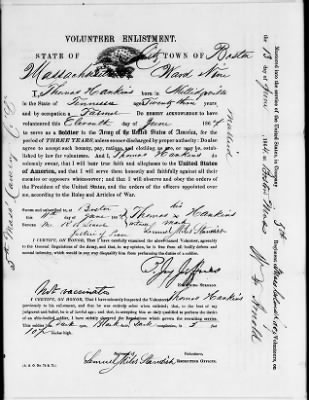 VOLUNTEER ENLISTMENT.
STATE OF City TOWN OF Boston
Massachusetts Ward Nine
I, Thomas Hankins born in Milledgeville
in the State of Tennessee aged Twenty three years,
and by occupation a Farmer Do HEREBY ACKNOWLEDGE to have
volunteered this Eleventh day of June 186
to serve as a Soldier in the Army of the United States of America, for the
period of THREE YEARS, unless sooner discharged by proper authority: Do also
agree to accept such bounty, pay, rations, and clothing as are, or may be, estab-
lished by law for volunteers. And I, Thomas Hankins do
solemnly swear, that I will bear true faith and allegiance to the United States
of America, and that I will serve them honestly and faithfully against all their
enemies or opposers whomsoever; and that I will observe and obey the orders of
the President of the United States, and the orders of the officers appointed over
me, according to the Rules and Articles of War.
Sworn and subscribed to, at Boston his
this 11th day of June Thomas Hankins
BEFORE mark
Justice of Peace Samuel Miles Standish
I CERTIFY, ON HONOR, That I have carefully examined the above-named Volunteer, agreeably to the
General Regulations of the Army, and that, in my opinion, he is free from all bodily defects and
mental infirmity, which would in any way disqualify him from performing the duties of a soldier.
Not vaccinated
EXAMINING SURGEON.
I CERTIFY, ON HONOR, That I have minutely inspected the Volunteer, Thomas Hankins
previously to his enlistment, and that he was entirely sober when enlisted; that, to the best of my
judgment and belief, he is of lawful age; and that, in accepting him as duly qualified to perform the duties
of an able-bodied soldier, I have strictly observed the Regulations which govern the recruiting service.
This soldier has Dark eyes, Black hair, Dark complexion, is 5 feet
inches high.
Samuel Miles Standish
Volunteers,
RECRUITING OFFICER.
Mustered into the service of the United States, in Company
Regiment Mass Cavalry Volunteers, on
the 13 day of June 1864 at Boston Mass